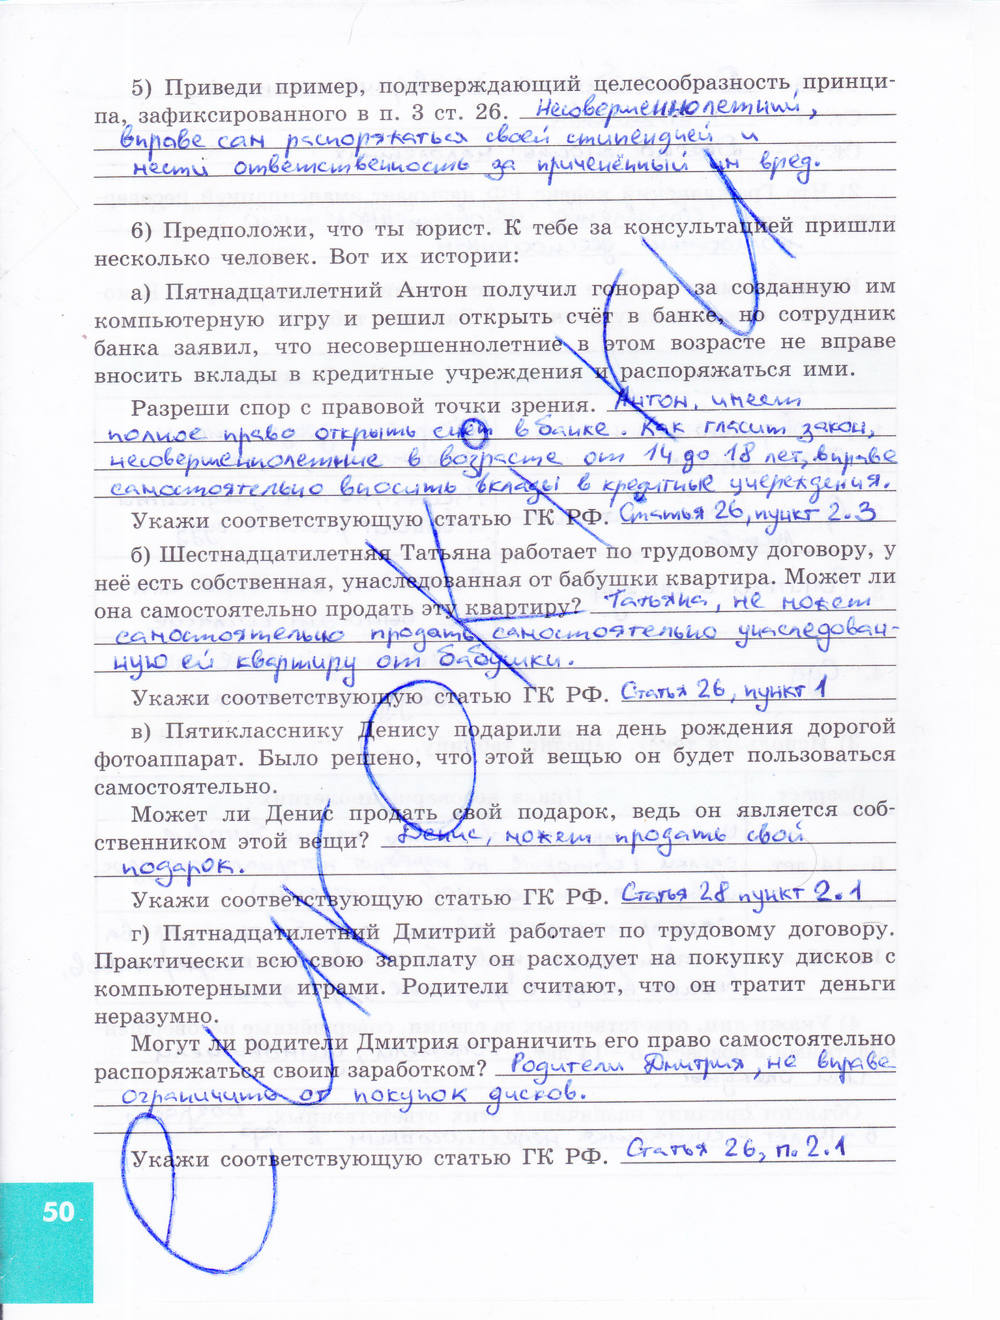 5) Приведи пример, подтверждающий целесообразность принци-
па, зафиксированного в п. 3 ст. 26. Несовершеннолетний,
вправе сам распоряжаться своей стипендией и
нести ответственность за причинённый им вред.
6) Предположи, что ты юрист. К тебе за консультацией пришли
несколько человек. Вот их истории:
а) Пятнадцатилетний Антон получил гонорар за созданную им
компьютерную игру и решил открыть счёт в банке, но сотрудник
банка заявил, что несовершеннолетние в этом возрасте не вправе
вносить вклады в кредитные учреждения и распоряжаться ими.
Разреши спор с правовой точки зрения. Антон, имеет
полное право открыть счёт в банке. Как гласит закон,
несовершеннолетние в возрасте от 14 до 18 лет, вправе
самостоятельно вносить вклады в кредитные учереждения.
Укажи соответствующую статью ГК РФ. Статья 26, пункт 2.3
б) Шестнадцатилетняя Татьяна работает по трудовому договору, у
неё есть собственная, унаследованная от бабушки квартира. Может ли
она самостоятельно продать эту квартиру? Татьяна, не может
самостоятельно продать самостоятельно унаследован-
ную ей квартиру от бабушки.
Укажи соответствующую статью ГК РФ. Статья 26, пункт 1
в) Пятикласснику Денису подарили на день рождения дорогой
фотоаппарат. Было решено, что этой вещью он будет пользоваться
самостоятельно.
Может ли Денис продать свой подарок, ведь он является соб-
ственником этой вещи? Денис, может продать свой
подарок.
Укажи соответствующую статью ГК РФ. Статья 28 пункт 2.1
г) Пятнадцатилетний Дмитрий работает по трудовому договору.
Практически всю свою зарплату он расходует на покупку дисков с
компьютерными играми. Родители считают, что он тратит деньги
неразумно.
Могут ли родители Дмитрия ограничить его право самостоятельно
распоряжаться своим заработком? Родители Дмитрия, не вправе
ограничить от покупок дисков.
Укажи соответствующую статью ГК РФ. Статья 26, п. 2.1
50